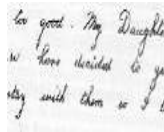 too good. My Daughte
w have decided to g
stay with them so I